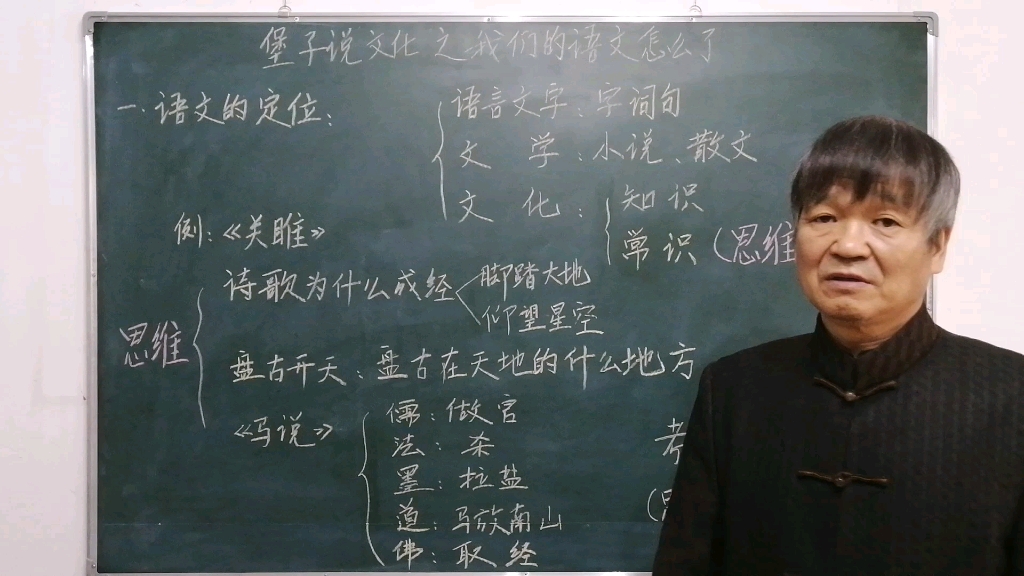 堡子说文化之我们的语文怎么了
一.语文的定位:
语言文字:字词句
文 学:小说、散文
文 化:
知 识
常 识(思维
例:《关雎》
思维
诗歌为什么成经
脚踏大地
仰望星空
盘古开天:盘古在天地的什么地方
《马说》
儒:做官
法:杀
墨:拉盐
道:马放南山
佛:取经
考